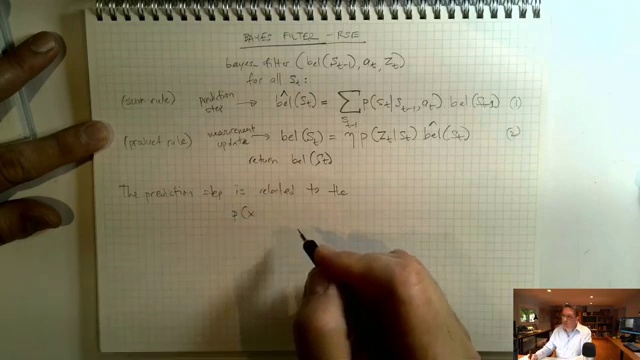 BAYES FILTER - RSE
bayes filter (bel(S_{t-1}), a_t, z_t)
for all S_t:
(sum rule) prediction step → b̂el(S_t) = Σ_{S_{t-1}} p(S_t|S_{t-1}, a_t) bel(S_{t-1}) (1)
(product rule) measurement update → bel(S_t) = η p(z_t|S_t) b̂el(S_t) (2)
return bel(S_t)
The prediction step is related to the
p(x